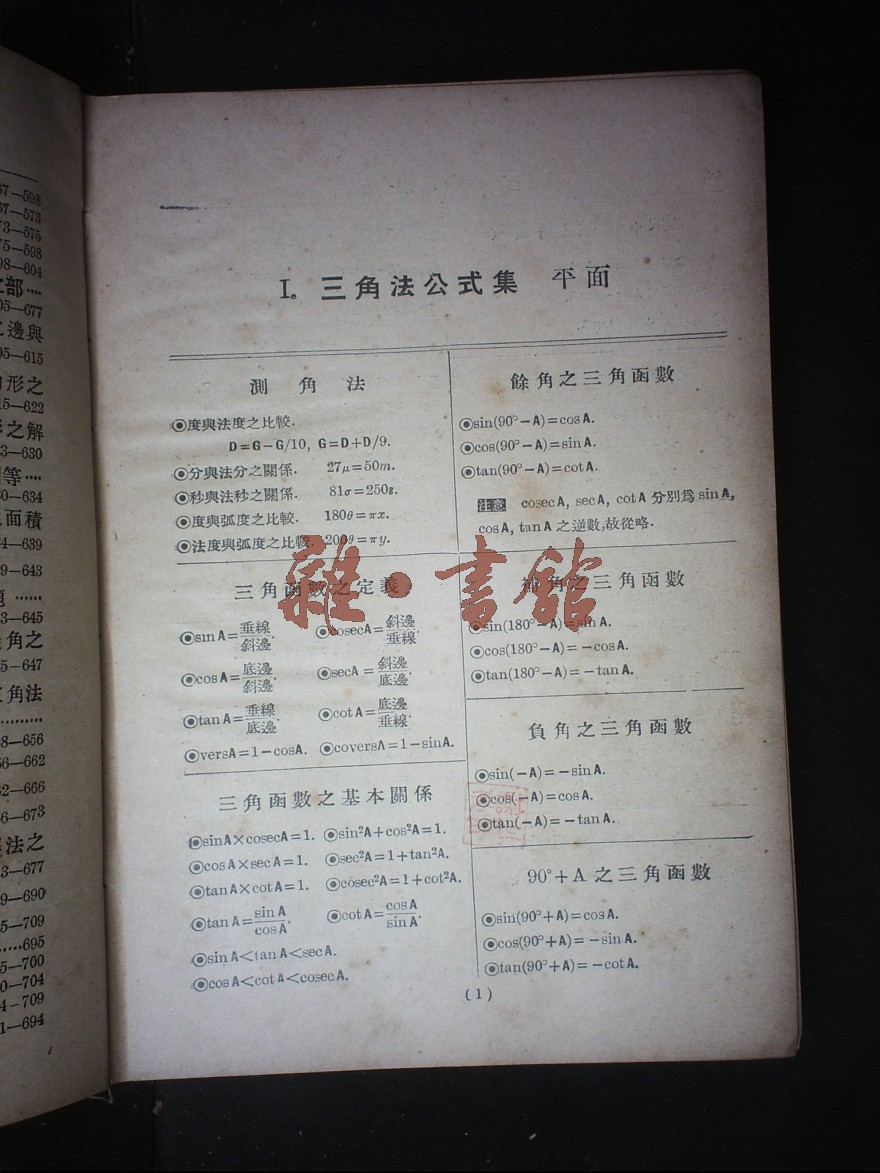 67—598
67—573
73—575
75—598
98—604
部····
05—677
邊與
95—615
形之
15—622
之解
23—630
等····
30—634
面積
34—639
39—643
題 ······
43—645
角之
45—647
角法
··········
48—656
56—662
62—666
66—673
法之
73—677
89—690
95—709
·····695
95—700
00—704
04—709
91—694
I. 三角法公式集 平面
測角法
◉度與法度之比較.
D=G－G/10, G=D+D/9.
◉分與法分之關係. 27μ=50m.
◉秒與法秒之關係. 81σ=250s.
◉度與弧度之比較. 180θ=πx.
◉法度與弧度之比較. 200θ=πy.
三角函數之定義
◉sin A=垂線/斜邊. ◉cosec A=斜邊/垂線.
◉cos A=底邊/斜邊. ◉sec A=斜邊/底邊.
◉tan A=垂線/底邊. ◉cot A=底邊/垂線.
◉vers A=1－cos A. ◉covers A=1－sin A.
三角函數之基本關係
◉sin A×cosec A=1. ◉sin²A+cos²A=1.
◉cos A×sec A=1. ◉sec²A=1+tan²A.
◉tan A×cot A=1. ◉cosec²A=1+cot²A.
◉tan A=sin A/cos A. ◉cot A=cos A/sin A.
◉sin A<tan A<sec A.
◉cos A<cot A<cosec A.
餘角之三角函數
◉sin(90°－A)=cos A.
◉cos(90°－A)=sin A.
◉tan(90°－A)=cot A.
注意 cosec A, sec A, cot A 分別爲 sin A,
cos A, tan A 之逆數,故從略.
補角之三角函數
◉sin(180°－A)=sin A.
◉cos(180°－A)=－cos A.
◉tan(180°－A)=－tan A.
負角之三角函數
◉sin(－A)=－sin A.
◉cos(－A)=cos A.
◉tan(－A)=－tan A.
90°+A 之三角函數
◉sin(90°+A)=cos A.
◉cos(90°+A)=－sin A.
◉tan(90°+A)=－cot A.
(1)
雜·書館